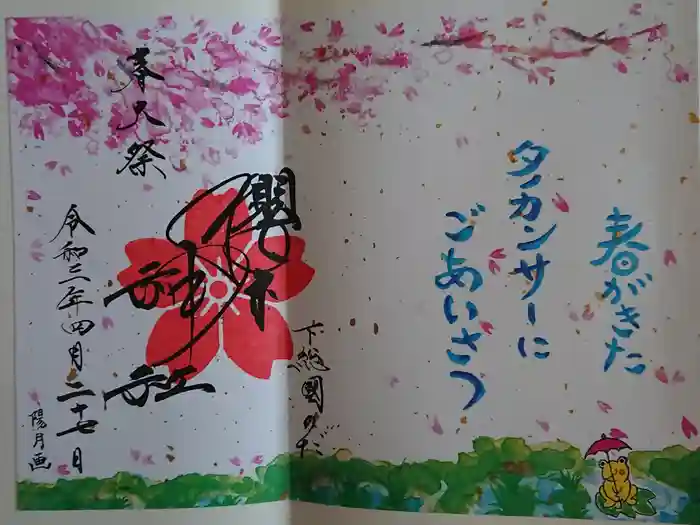 春がきた
タンカンサーに
ごあいさつ
下総國のだ
櫻木
神社
春大祭
令和二年四月二十七日
陽月画